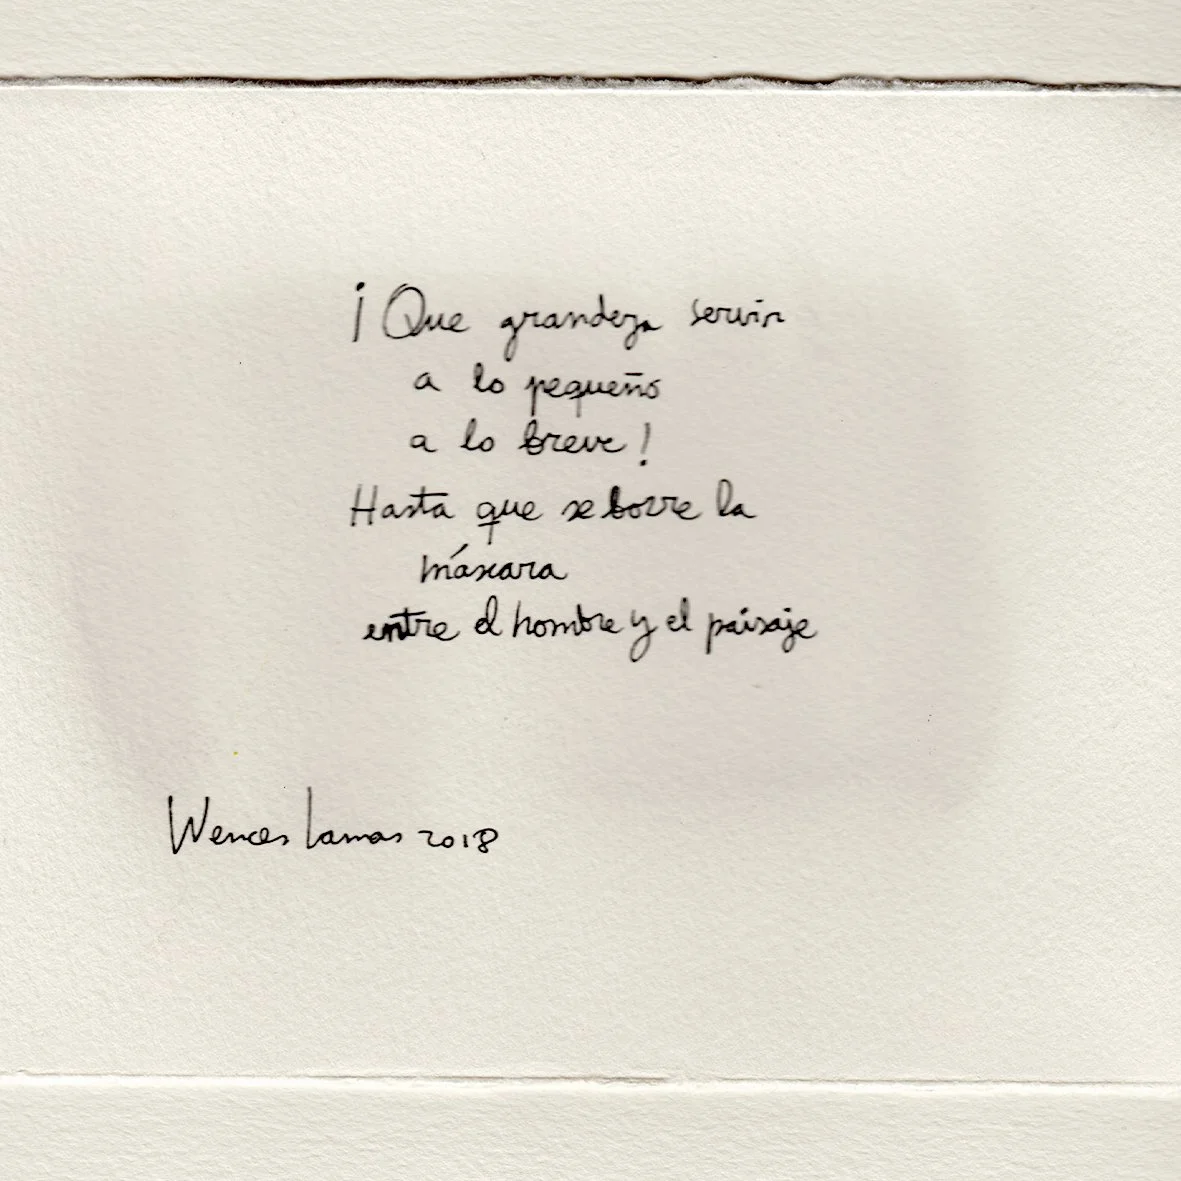 ¡Que grandeza servir
a lo pequeño
a lo breve!
Hasta que se borre la
máscara
entre el hombre y el paisaje
Wences Lamas 2018